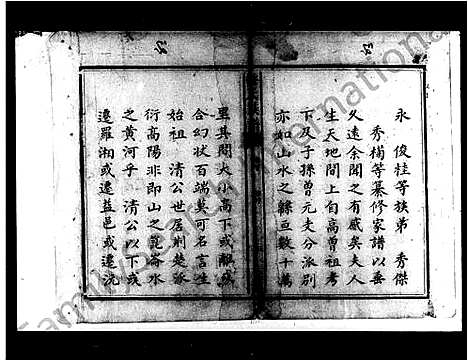 永 俊桂等族弟 秀傑
秀楠等纂修家譜以垂
久遠余聞之有感矣夫人
生天地間上自高曾祖考
下及子孫曾元支分派別
亦如山水之緜亘數十萬
里其間大小高下或離或
合幻狀百端莫可名言生
始祖 清公世居荊楚派
衍高陽非即山之崑崙水
之黄河乎 清公以下或
遷羅湘或遷益邑或遷沅
Family International